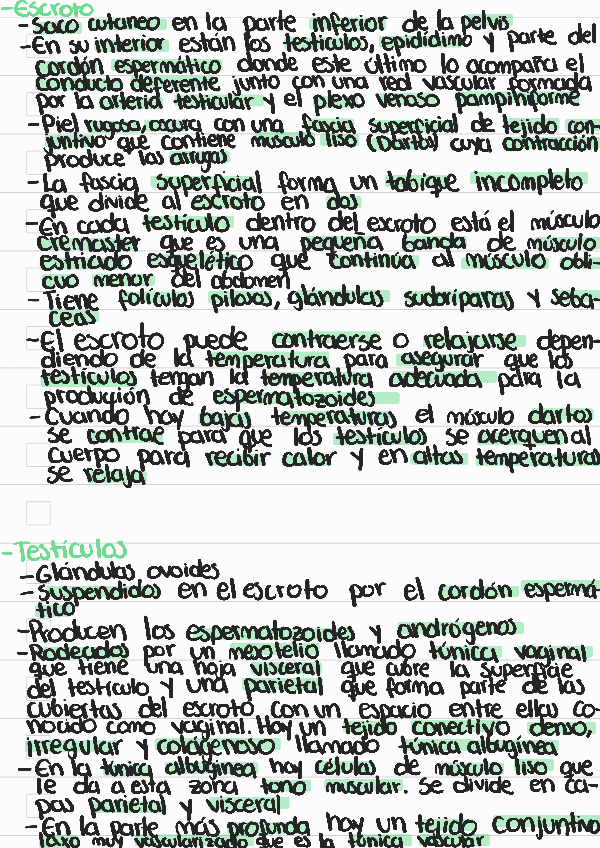 -Escroto
-Saco cutaneo en la parte inferior de la pelvis
-En su interior están los testículos, epidídimo y parte del
cordón espermático donde este último lo acompaña el
conducto deferente junto con una red vascular formada
por la arteria testicular y el plexo venoso pampiniforme
-Piel rugosa, oscura con una fascia superficial de tejido con-
juntivo que contiene musculo liso (Dartos) cuya contracción
produce las arrugas
-La fascia superficial forma un tabique incompleto
que divide al escroto en dos
-En cada testículo dentro del escroto está el músculo
cremaster que es una pequeña banda de músculo
estriado esquelético que continúa al músculo obli-
cuo menor del abdomen
-Tiene folículos pilosos, glándulas sudoríparas y seba-
ceas
-El escroto puede contraerse o relajarse depen-
diendo de la temperatura para asegurar que los
testículos tengan la temperatura adecuada para la
produción de espermatozoides
-Cuando hay bajas temperaturas el músculo dartos
se contrae para que los testículos se acerquen al
cuerpo para recibir calor y en altas temperaturas
se relaja
-Testículos
-Glándulas ovoides
-Suspendidos en el escroto por el cordón espermá-
tico
-Producen los espermatozoides y andrógenos
-Rodeados por un mesotelio llamado túnica vaginal
que tiene una hoja visceral que cubre la superficie
del testículo y una parietal que forma parte de las
cubiertas del escroto con un espacio entre ellas co-
nocido como vaginal. Hay un tejido conectivo denso,
irregular y colágenoso llamado túnica albugínea
-En la túnica albugínea hay células de músculo liso que
le da a esta zona tono muscular. Se divide en ca-
pas parietal y visceral
-En la parte más profunda hay un tejido conjuntivo
laxo muy vascularizado que es la túnica vascular